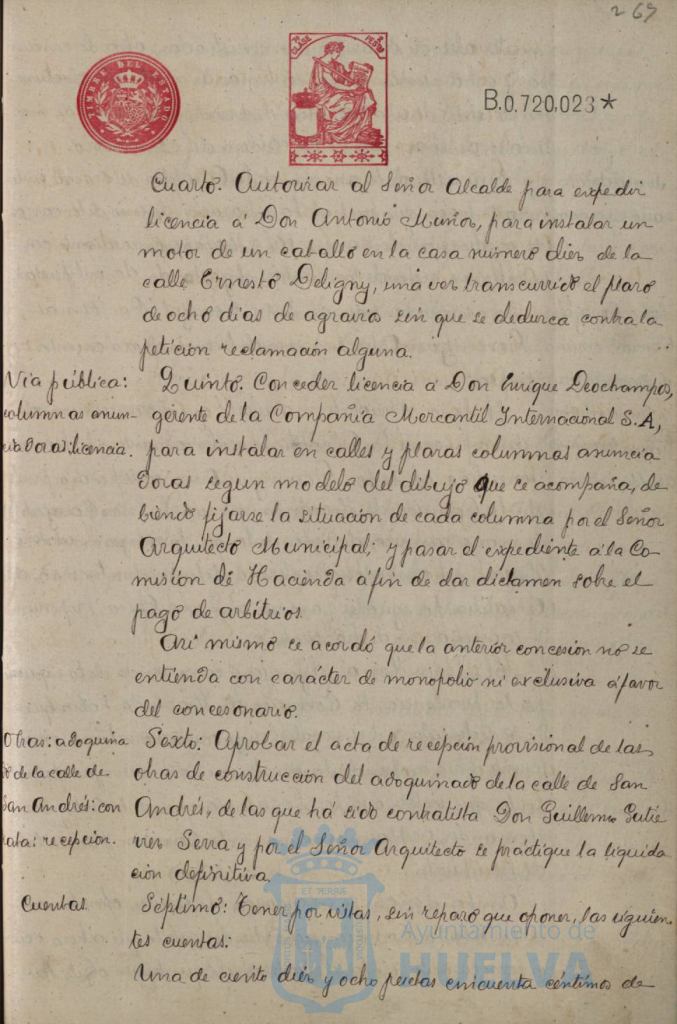 269
TIMBRE DEL ESTADO
CLASE
B.0.720,023*
Cuarto. Autorizar al Señor Alcalde para expedir
licencia á Don Antonio Muñoz, para instalar un
motor de un caballo en la casa número diez de la
calle Ernesto Deligny, una vez transcurrido el plazo
de ocho dias de agravios sin que se deduzca contra la
petición reclamación alguna.
Via pública:
columnas anun-
ciadoras: licencia.
Quinto. Conceder licencia á Don Enrique Deochampos,
gerente de la Compañia Mercantil Internacional S.A,
para instalar en calles y plazas columnas anuncia
doras segun modelo del dibujo que se acompaña, de
biendo fijarse la situación de cada columna por el Señor
Arquitecto Municipal; y pasar el expediente á la Co-
misión de Hacienda á fin de dar dictamen sobre el
pago de arbitrios.
Asi mismo se acordó que la anterior concesion no se
entienda con carácter de monopolio ni exclusiva á favor
del concesonario.
Obras: adoquina
do de la calle de
San Andrés: con
trata: recepcion.
Sexto: Aprobar el acta de recepción provisional de las
obras de construcción del adoquinado de la calle de San
Andrés, de las que há sido contratista Don Guillermo Gutié
rrez Serra y por el Señor Arquitecto se práctique la liquida
ción definitiva.
Cuentas.
Séptimo: Tener por vistas, sin reparo que oponer, las siguien-
tes cuentas:
Una de ciento diez y ocho pesetas cincuenta céntimos de
Ayuntamiento de
HUELVA